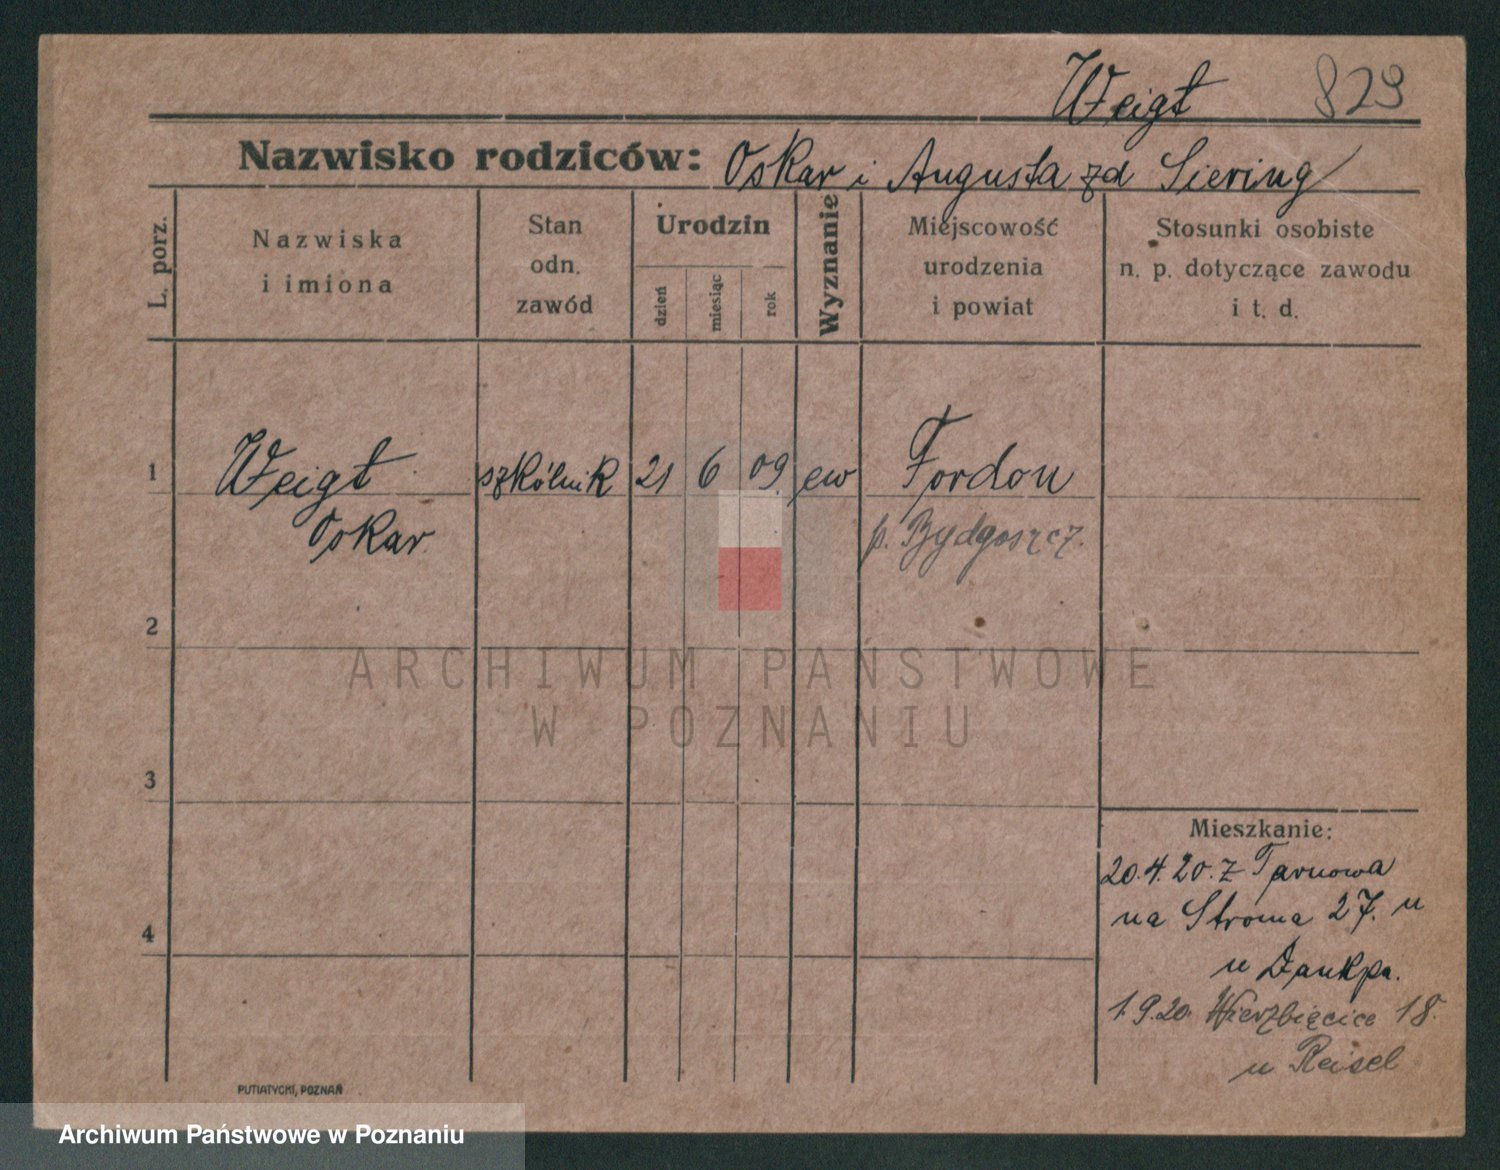 Weigt 829
Nazwisko rodziców: Oskar i Augusta zd Siering
L. porz.
Nazwiska
i imiona
Stan
odn.
zawód
Urodzin
dzień
miesiąc
rok
Wyznanie
Miejscowość
urodzenia
i powiat
Stosunki osobiste
n. p. dotyczące zawodu
i t. d.
1 Weigt szkólnik 21 6 09 ew Fordon
Oskar p. Bydgoszcz.
2
ARCHIWUM PAŃSTWOWE
W POZNANIU
3
Mieszkanie:
20.4.20. z Tarnowa
na Stroma 27. u
4
u
1.9.20. Wierzbięcice 18.
u Reisel
PUTIATYCKI, POZNAŃ
Archiwum Państwowe w Poznaniu